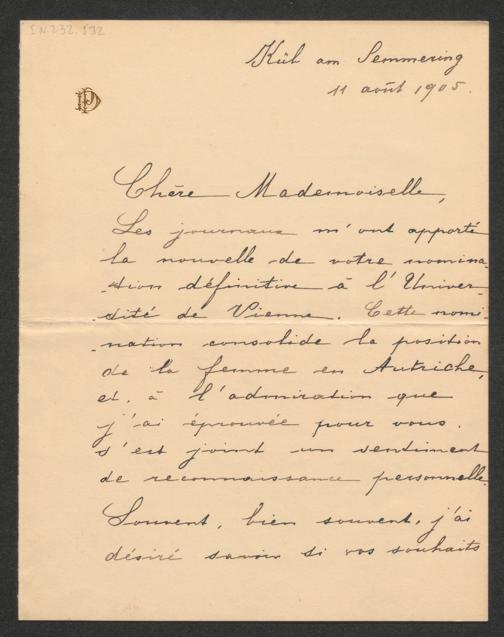 I.N. 232.592
Küb am Semmering
11 août 1905.
Chère Mademoiselle,
Les journaux m'ont apporté
la nouvelle de votre nomina-
-tion définitive à l'Univer-
-sité de Vienne. Cette nomi-
-nation consolide la position
de la femme en Autriche,
et, à l'admiration que
j'ai éprouvée pour vous.
s'est joint un sentiment
de reconnaissance personnelle.
Souvent, bien souvent, j'ai
désiré savoir si vos souhaits